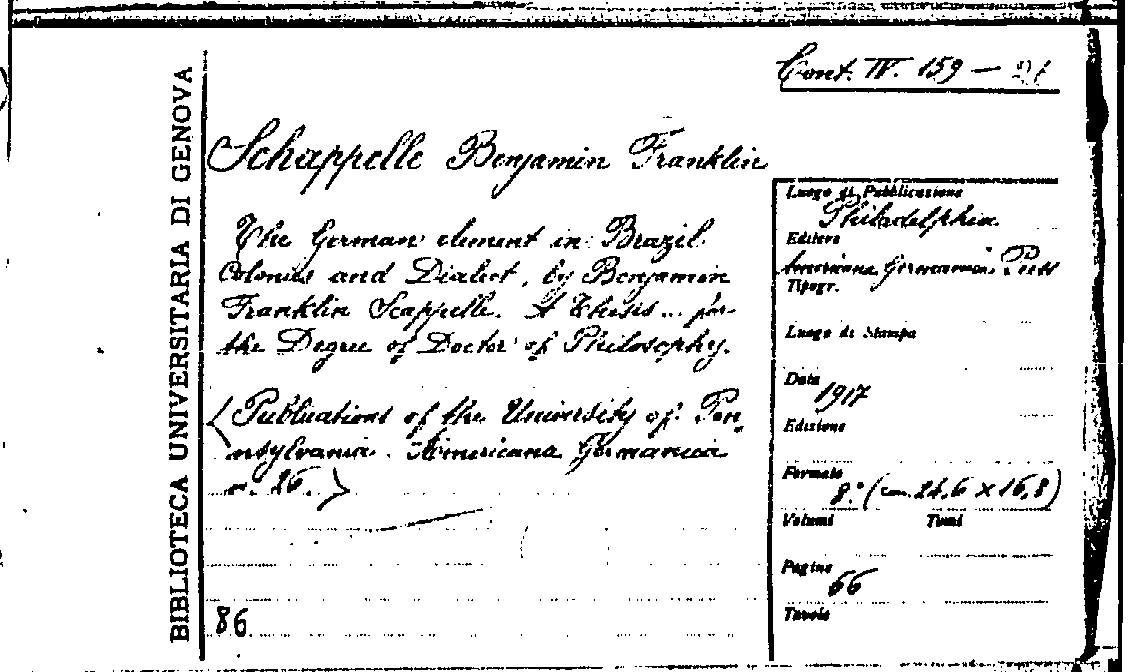 BIBLIOTECA UNIVERSITARIA DI GENOVA
Cont. IV. 159 — 21
Schappelle Benjamin Franklin
The German element in Brazil
Colonies and Dialect, by Benjamin
Franklin Scappelle. A Thesis... for
the Degree of Doctor of Philosophy.
(Publications of the University of Pen,
nsylvania. Americana Germanica
n. 26.)
86
Luogo di Pubblicazione
Philadelphia
Editore
Americana Germanica Press
Tipogr.
Luogo di Stampa
Data
1917
Edizione
Formato
8.° (cm. 24,6 × 16,8)
Volumi Tomi
Pagine
66
Tavole